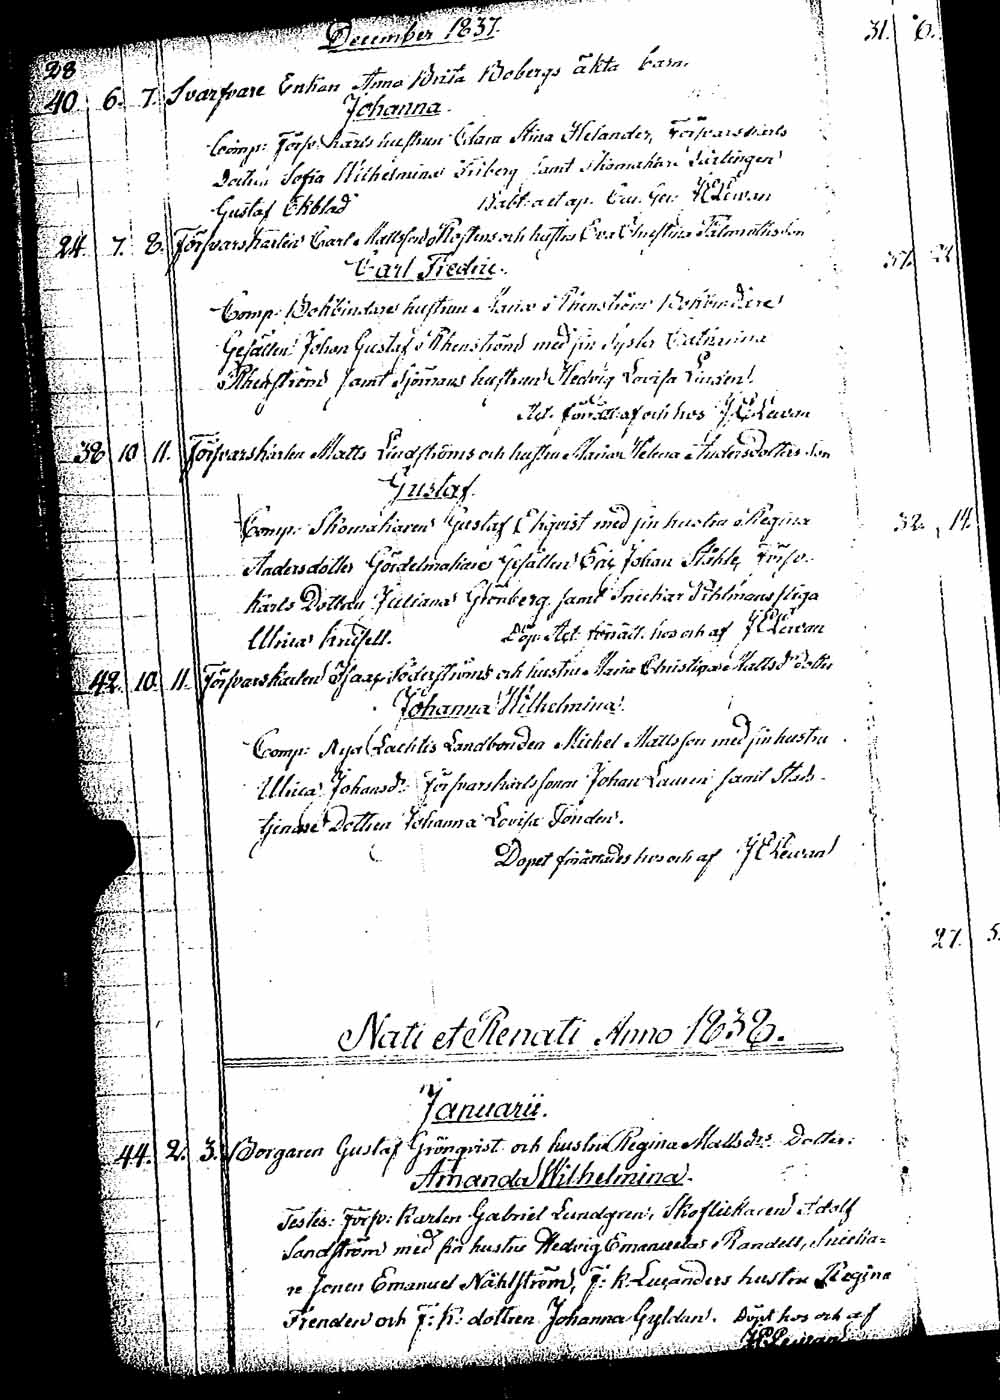 December 1837.
31. 6.
28
40 6. 7. Svarfvare Enkan Anna Brita Bobergs äkta barn
Johanna.
Comp: Förfv: karls hustrun Clara Stina Helander, Förfvarskarls
Dottren Sofia Wilhelmina Friberg samt skomakare Lärlingen
Gustaf Ekblad
24. 7. 8. Försvarskarlen Carl Mattsson och hustrus Eva Christina son
Carl Fredric.
Comp: Bokbindare hustrun Maria Rhenström Bokbindare
Gesällen Johan Gustaf Rhenström med sin syster Catharina
Rhenström samt Sjömans hustrun Hedvig Lovisa Linden.
Act. förrätt. af och hos J E Levan
38 10 11. Försvarskarlen Matts Lindströms och hustru Maria Helena Andersdotters son
Gustaf.
32. 14.
Comp: Skomakaren Gustaf Ekqvist med sin hustru Regina
Andersdotter Gördelmakare Gesällen Eric Johan Ståhle, Försv.
Karls Dottren Juliana Grönberg samt Snickar Pihlmans piga
Ulrica
Döp. Act. förrätt. hos och af J E Levan
42. 10. 11. Försvarskarlen Isaac Söderströms och hustru Maria Christina Mattsd: dotter
Johanna Wilhelmina.
Comp: Nya Lachtis Landbonden Michel Mattsson med sin hustru
Ulrica Johansd: Försvarskarlssonen Johan Lauren samt Stads-
tjenare Dottren Johanna Lovisa Tonden.
Dopet förrättades hos och af J E Levan
27. 5.
Nati et Renati Anno 1838.
Januarii.
44. 2. 3. Borgaren Gustaf Grönqvist och hustru Regina Mattsdrs Dotter:
Amanda Wilhelmina.
Testes: Försv: Karlen Gabriel Lundgren, Skoflickaren Adolf
Sandström med sin hustru Hedvig Emanuela Randell, Snicka=
re sonen Emanuel Nählström, F: K: Lucanders hustru Regina
Frenden och F: K: dottren Johanna Gyldan. Döpt hos och af
J E Levan